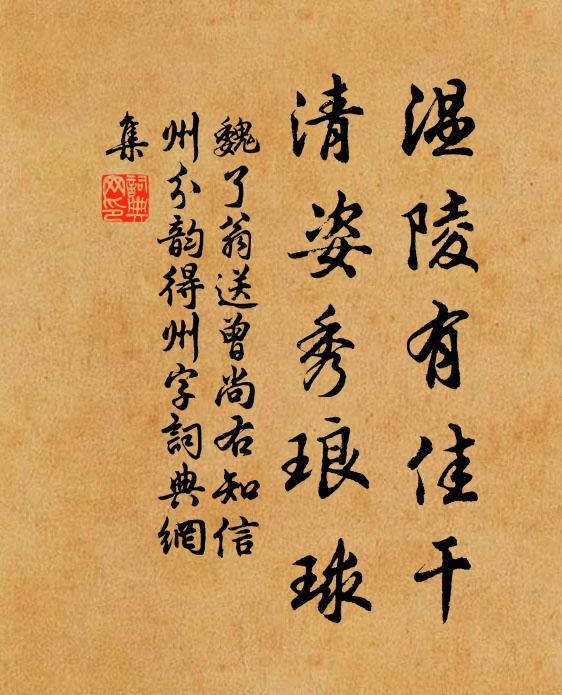 温陵有佳干
清姿秀琅球
魏了翁送曾尚右知信
州分韵得州字詞典網
集
詞典網印